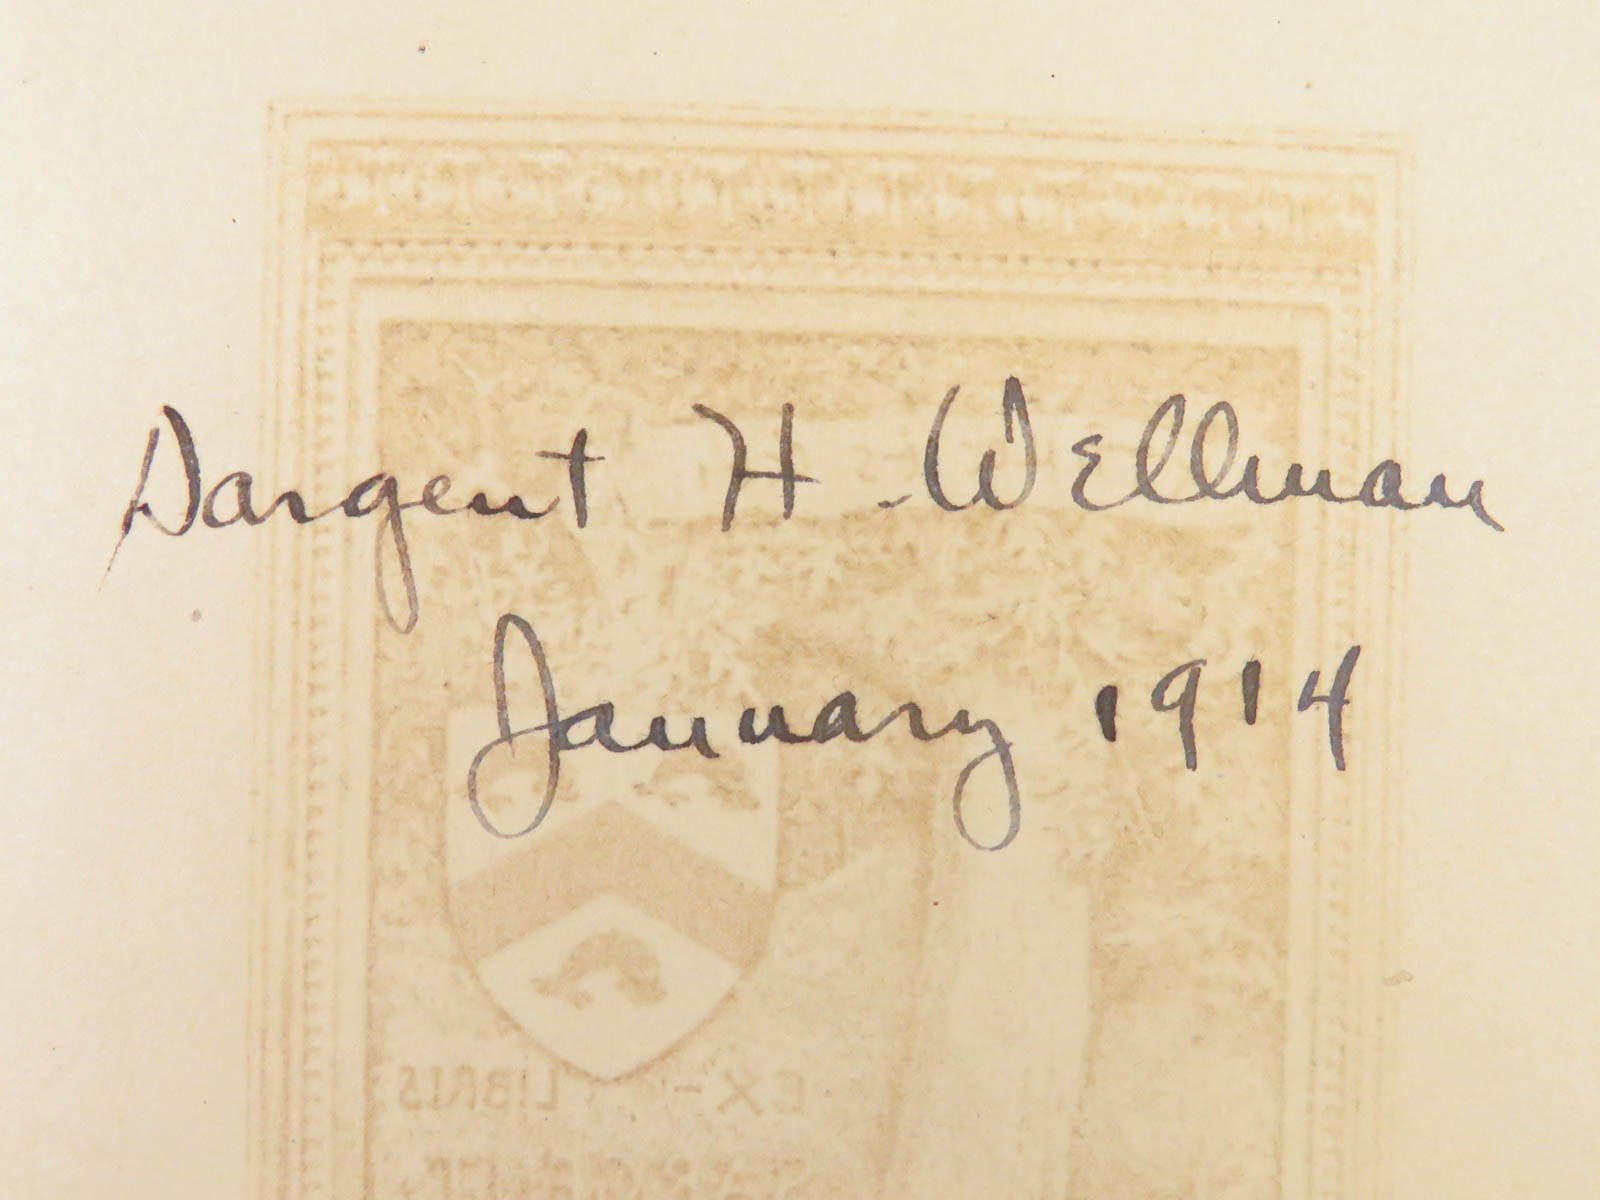 Sargent H. Wellman
January 1914
EX - LIBRIS